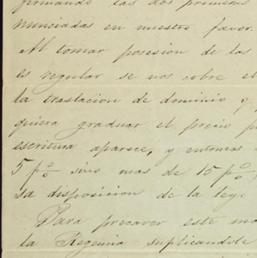 firmando las dos primeras
nunciadas en nuestro favor.
Al tomar posesion de las
es regular se nos cobre el
la traslacion de dominio y
quiera graduar el precio p
escritura aparece, y entonces
5 p% sino mas de 15 p%
sa disposicion de la ley.
Para precaver este
la Regencia suplicandole